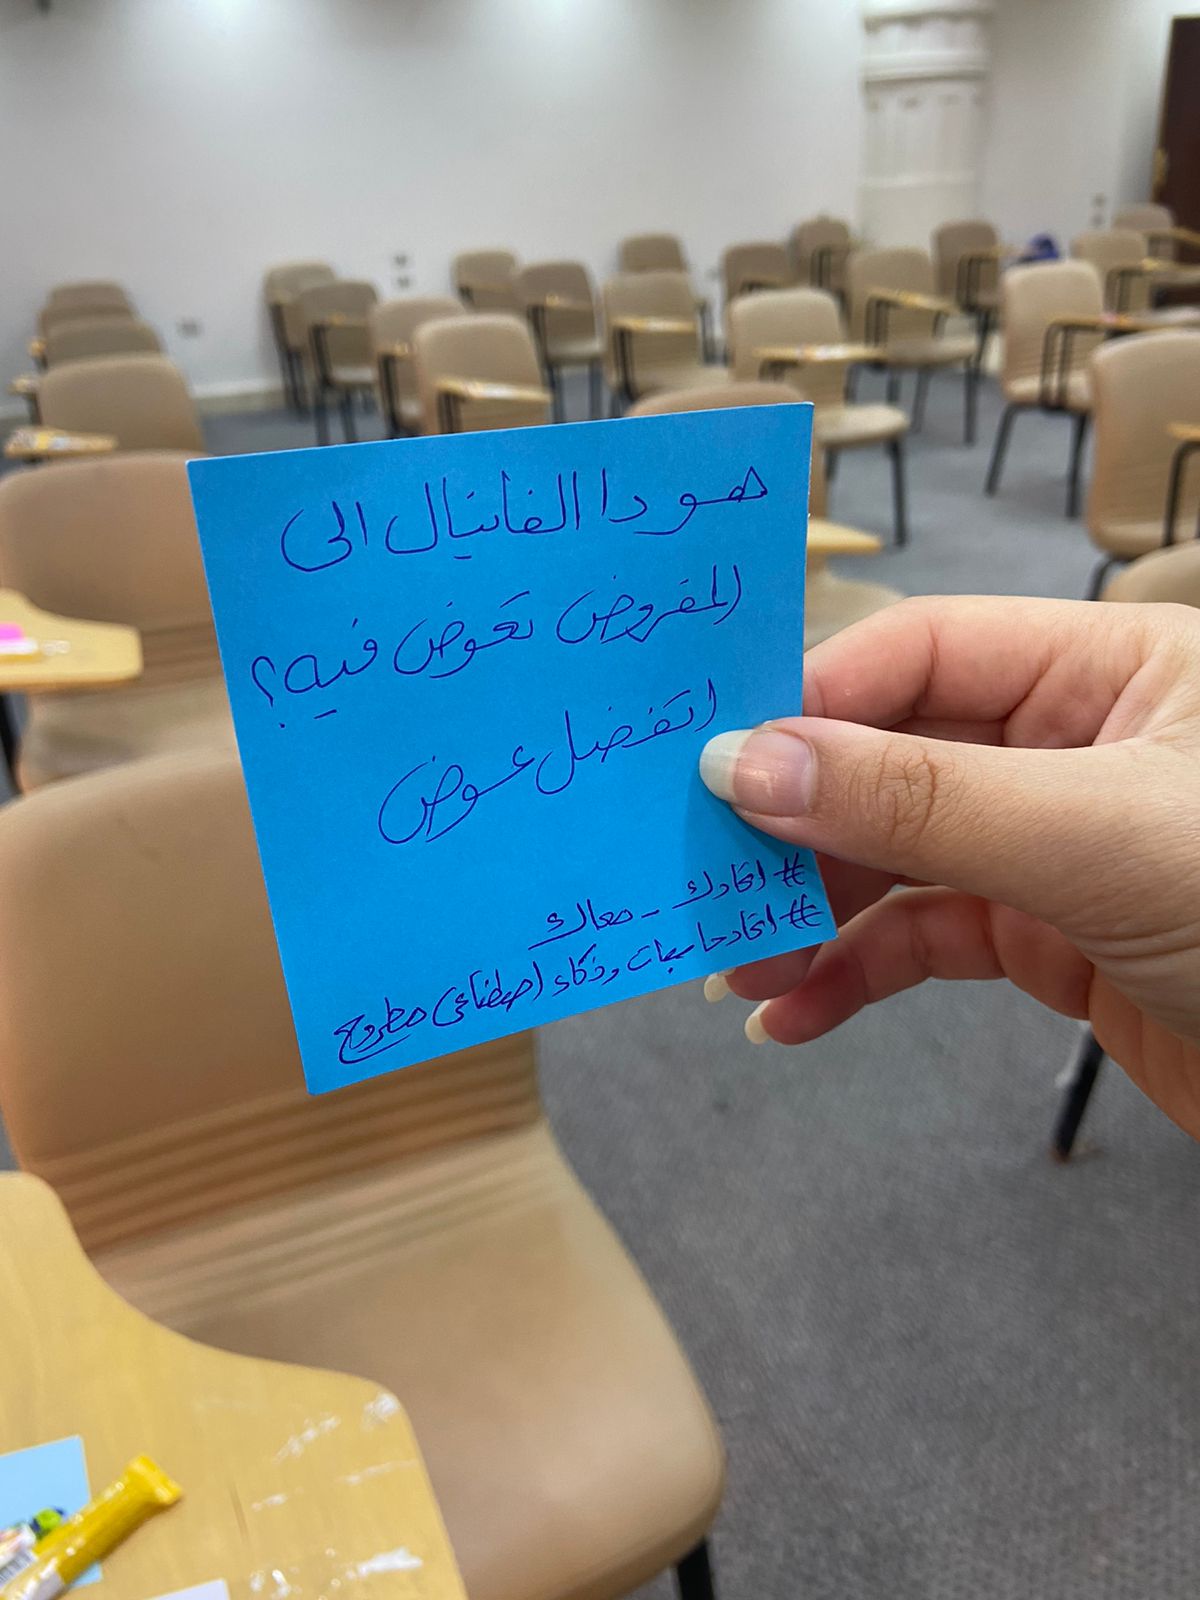 هو دا الفاينال الى
المفروض تعوض فيه؟
اتفضل عوض
# اتحادك _ معاك
# اتحاد حاسبات وذكاء اصطناعى مطروح